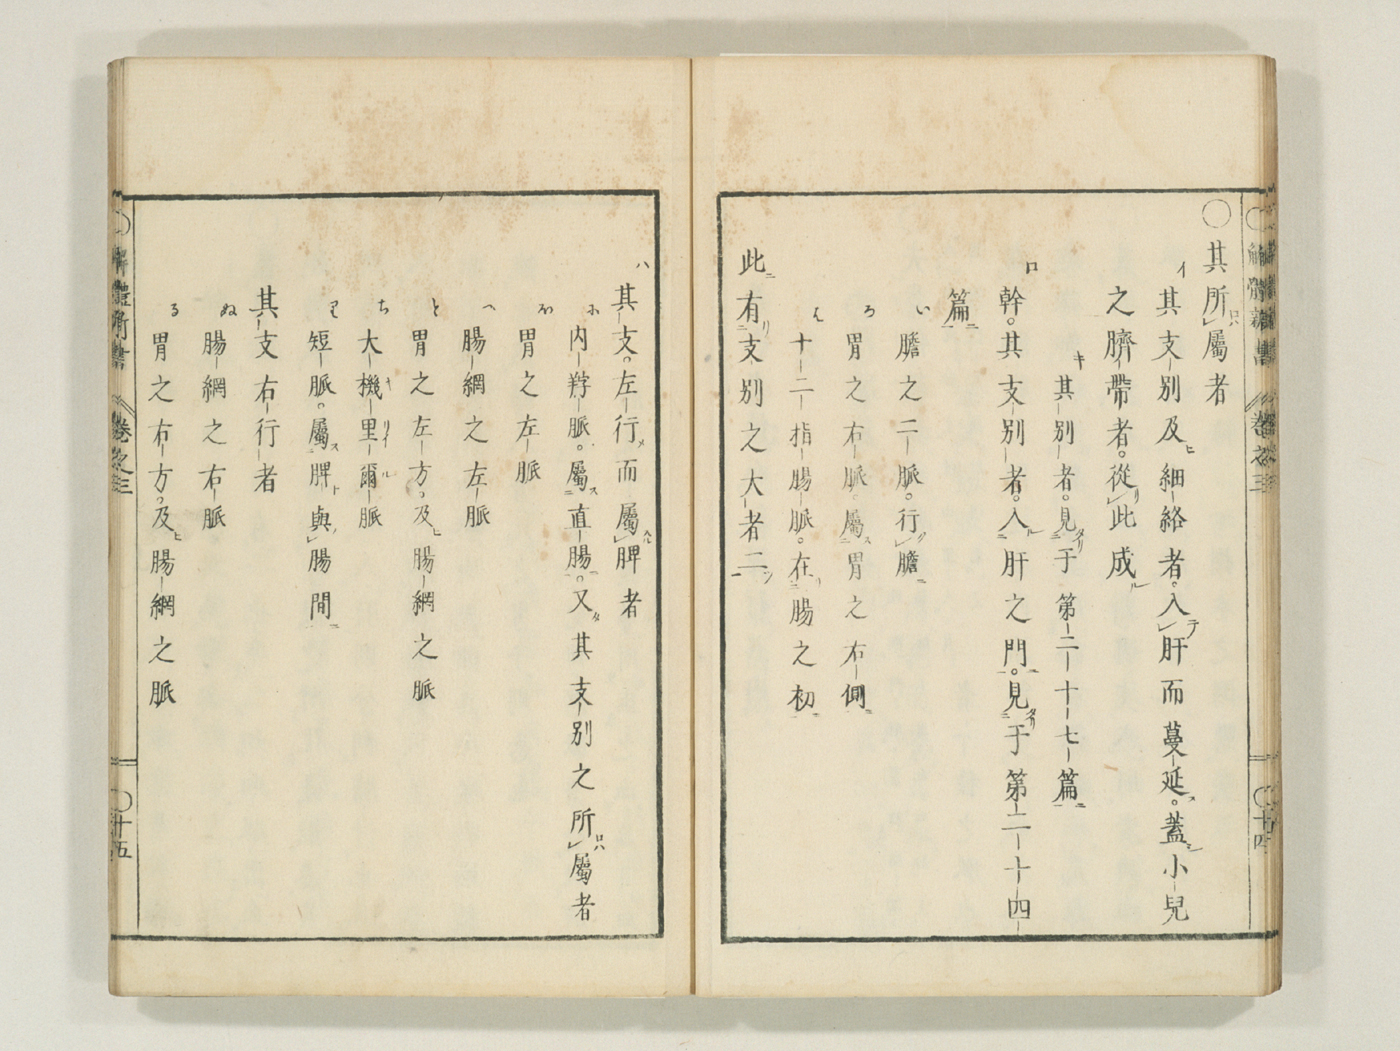 〇其所屬者
イ其支別及細絡者。入肝而蔓延。蓋小兒
之臍帶者。從此成
キ其別者。見于第二十七篇
ロ幹。其支別者。入肝之門。見于第二十四
篇
い膽之二脈。行膽
ろ胃之右脈。屬胃之右側
は十二指腸脈。在腸之初
此有支別之大者二
解體新書 巻之三 〇十四
ハ其支。左行而屬脾者
に内羘脈。屬直腸。又其支別之所屬者
ほ胃之左脈
へ腸網之左脈
と胃之左方。及腸網之脈
ち大機里爾脈
り短脈。屬脾與腸間
其支右行者
ぬ腸網之右脈
る胃之右方。及腸網之脈
解體新書 巻之三 〇十五